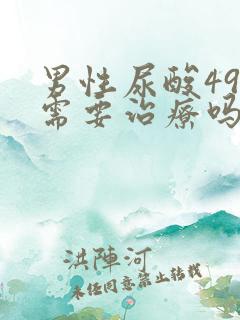 男性尿酸49
需要治疗吗
洪陣河
未经同意禁止转载